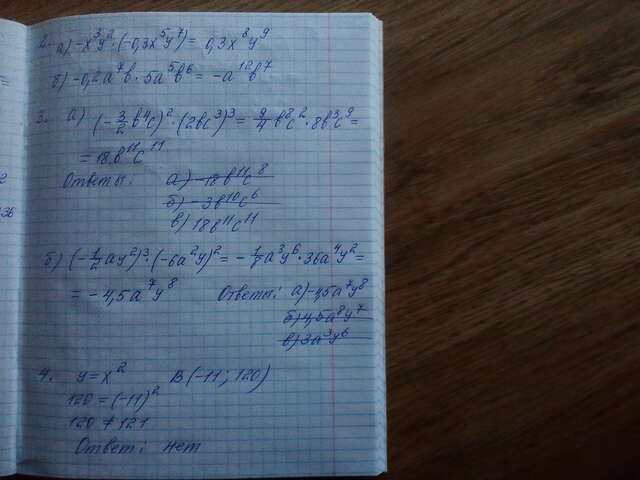 2. а) -x³y² · (-0,3x⁵y⁷) = 0,3x⁸y⁹
б) -0,2a⁷b · 5a⁵b⁶ = -a¹²b⁷
3. а) (-3/2 b⁴c)² · (2bc³)³ = 9/4 b⁸c² · 8b³c⁹ =
= 18b¹¹c¹¹
Ответы: а) -18b¹¹c⁸
б) -3b¹⁰c⁶
в) 18b¹¹c¹¹
б) (-1/2 ay²)³ · (-6a²y)² = -1/8 a³y⁶ · 36a⁴y² =
= -4,5a⁷y⁸ Ответы: а) -4,5a⁷y⁸
б) 4,5a⁸y⁷
в) 3a³y⁶
4. y = x² B (-11; 120)
120 = (-11)²
120 ≠ 121
Ответ: нет
36